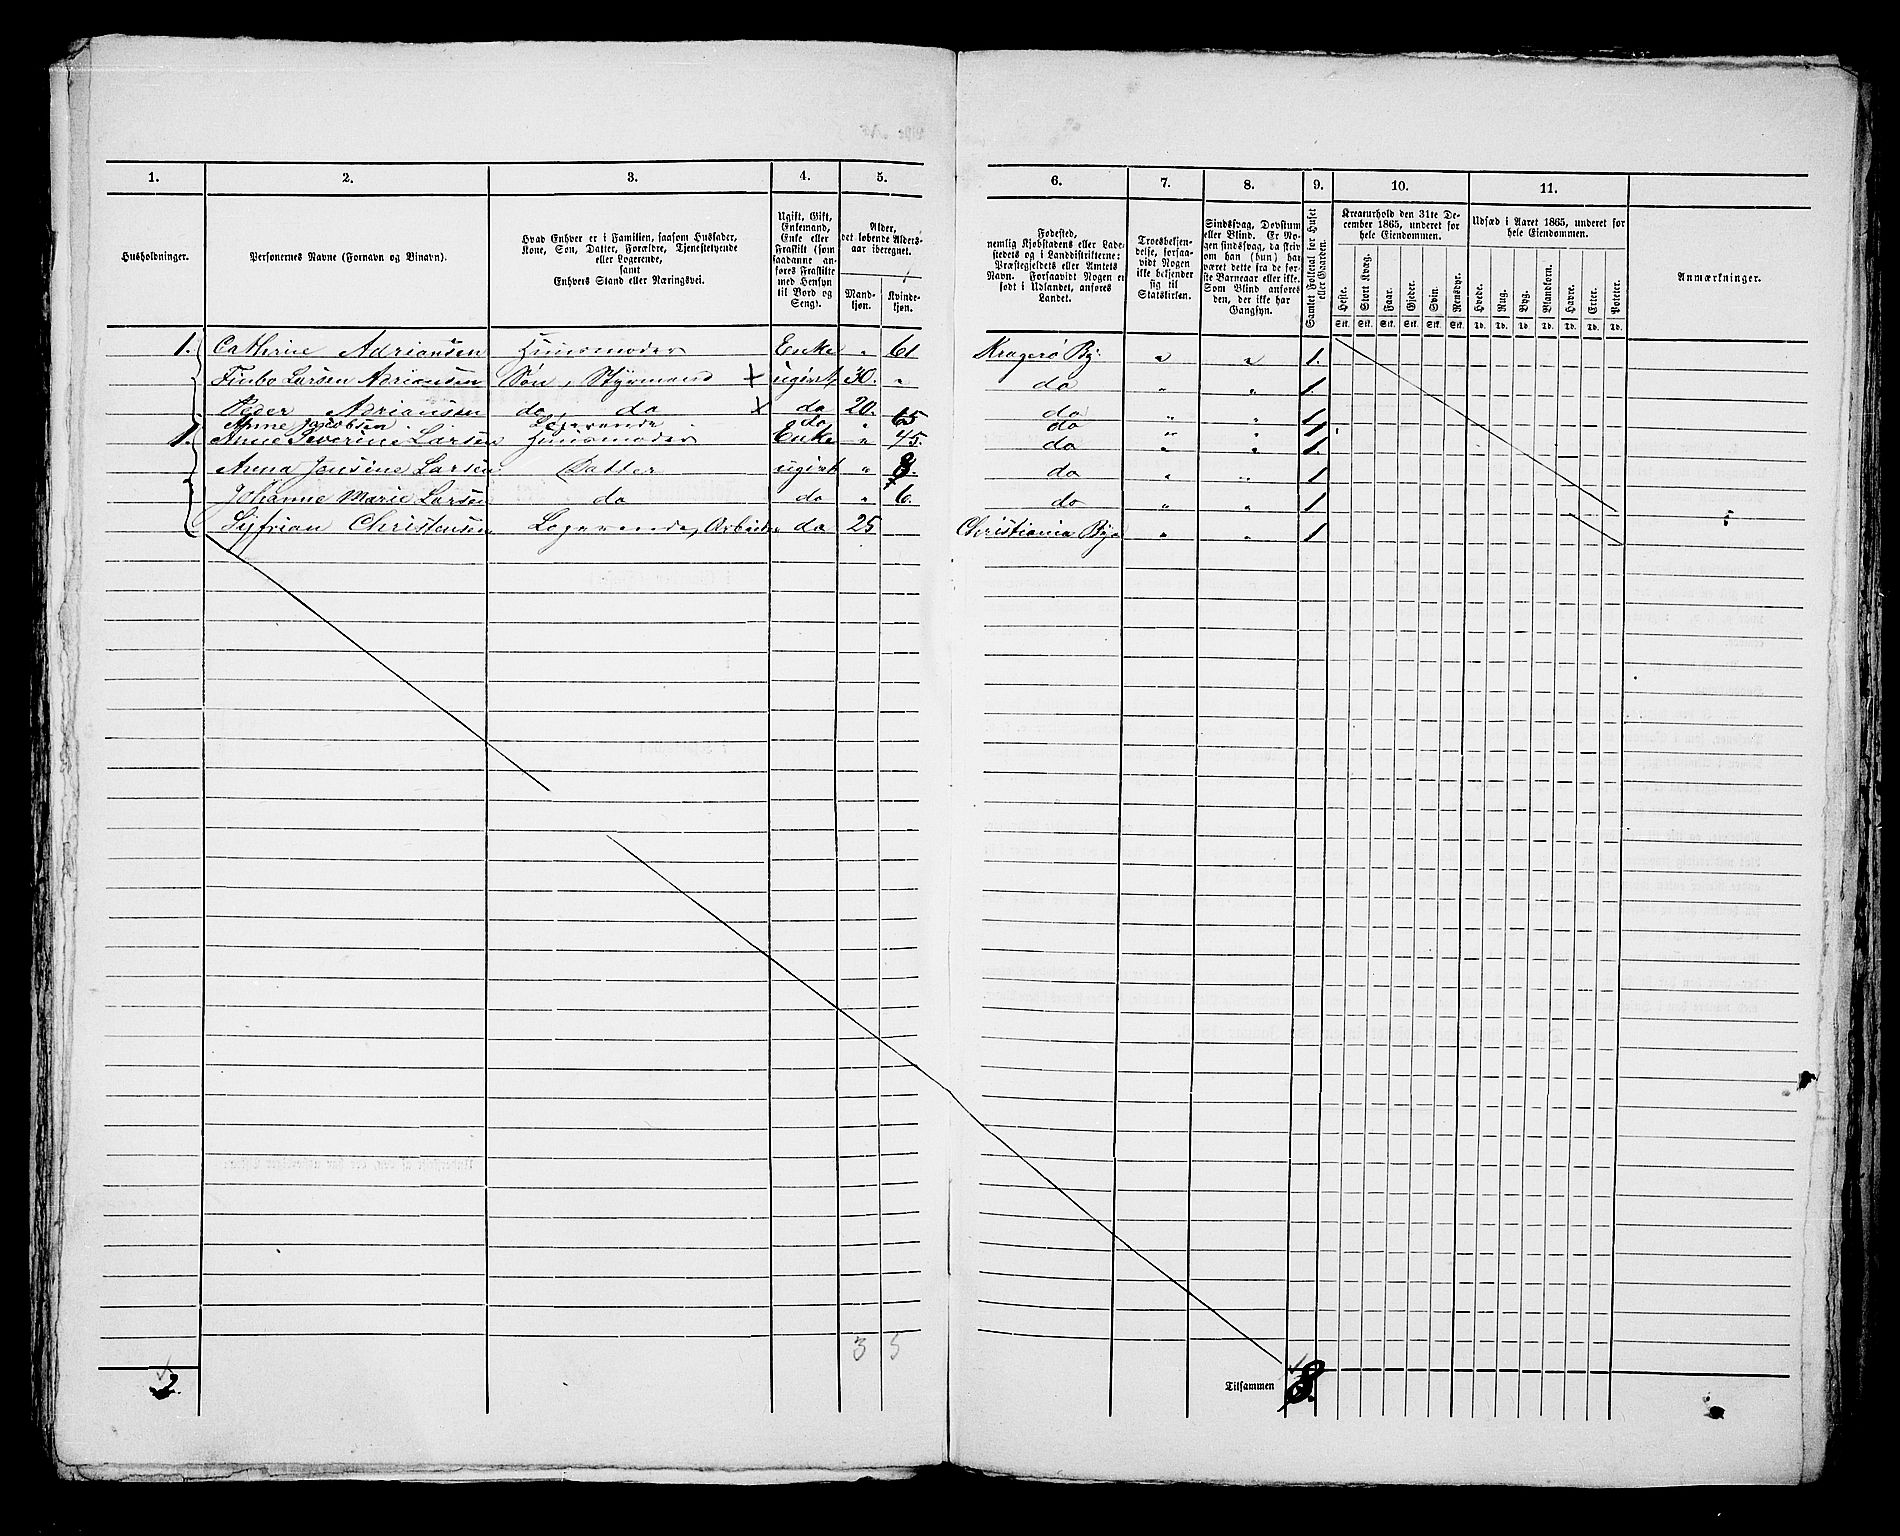 1. 2. 3. 4. 5. 6. 7. 8. 9. 10. 11.
Husholdninger.
Personernes Navne (Fornavn og Tilnavn).
Hvad Enhver er i Familien, saasom Husfader,
Kone, Søn, Datter, Forældre, Tjenestetyende
eller Logerende,
samt
Enhvers Stand eller Næringsvei.
Ugift, Gift,
Enkemand,
Enke eller
Fraskilt (som
saadanne an-
føres Fraskilte
med Hensyn
til Bord og
Seng).
Alder,
det løbende Alders-
aar iberegnet.
Mand-
kjøn.
Kvinde-
kjøn.
Fødested,
nemlig Kjøbstadens eller Lade-
stedets og i Landdistrikterne:
Præstegjeldets eller Amtets
Navn. Forsaavidt Nogen er
født i Udlandet, anføres
Landet.
Troesbekjen-
delse, forsaa-
vidt Nogen
ikke bekjender
sig til
Statskirken.
Sindssvag, Døvstum
eller Blind. Er No-
gen sindssvag, da skriv
om han (hun) har
været dette fra de før-
ste Barneaar eller ikke.
Som Blind anføres
den, der ikke har
Gangsyn.
Samlet Folketal for Huset
eller Gaarden.
Kreaturhold den 31te De-
cember 1865, underet for
hele Eiendommen.
Heste. Stort Kvæg. Faar. Gjeder. Svin. Rensdyr.
Stk. Stk. Stk. Stk. Stk. Stk.
Udsæd i Aaret 1865, underet for
hele Eiendommen.
Hvede. Rug. Byg. Blandkorn. Havre. Erter. Poteter.
Td. Td. Td. Td. Td. Td. Td.
Anmærkninger.
1. Cathrine Adriansen Huusmoder Enke „ 61 Kragerø By „ „ 1.
Larsen Adriansen Søn, Styrmand × ugivt 30. „ do „ „ 1.
Peder Adriansen do, do × do 20. do „ „ 1
Anne Jacobsen Logerende do „ 65 do „ „ 1
1. Anne Severine Larsen Huusmoder Enke „ 45. do „ „ 1.
Anna Jensine Larsen Datter ugivt „ 8. do „ „ 1
Johanne Marie Larsen do do „ 6. do „ „ 1
Christensen Logerende, Arbeider do 25 Christiania By „ „ 1
3 5
2.
Tilsammen 8.